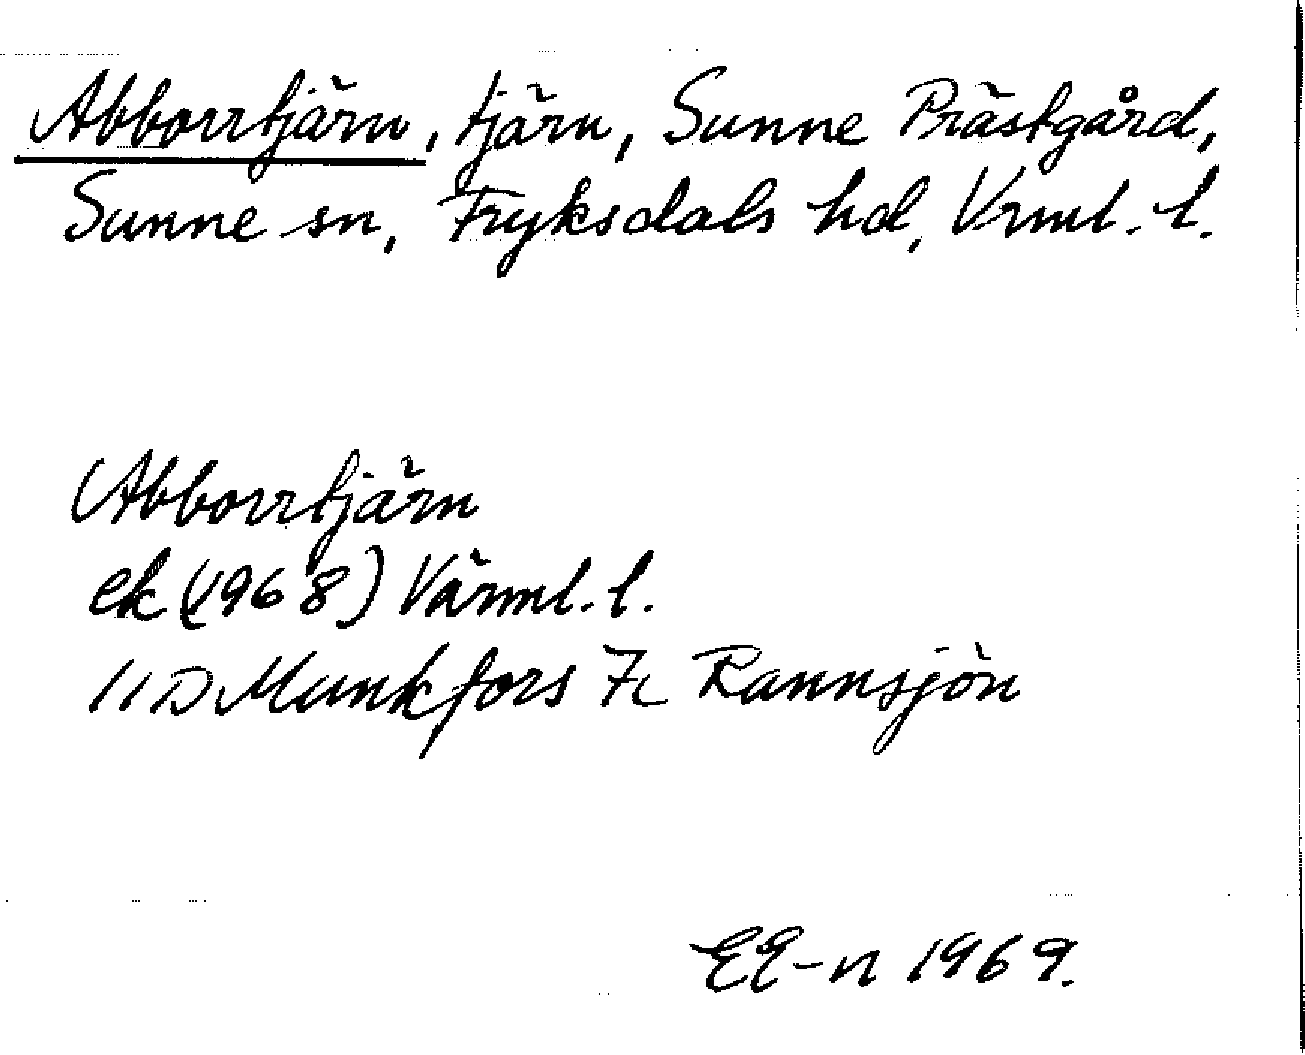 Abborrtjärn, tjärn, Sunne Prästgård,
Sunne sn, Fryksdals hd, Vrml. l.
Abborrtjärn
ek (1968) Värml. l.
11D Munkfors 7c Rannsjön
EE-n 1969.